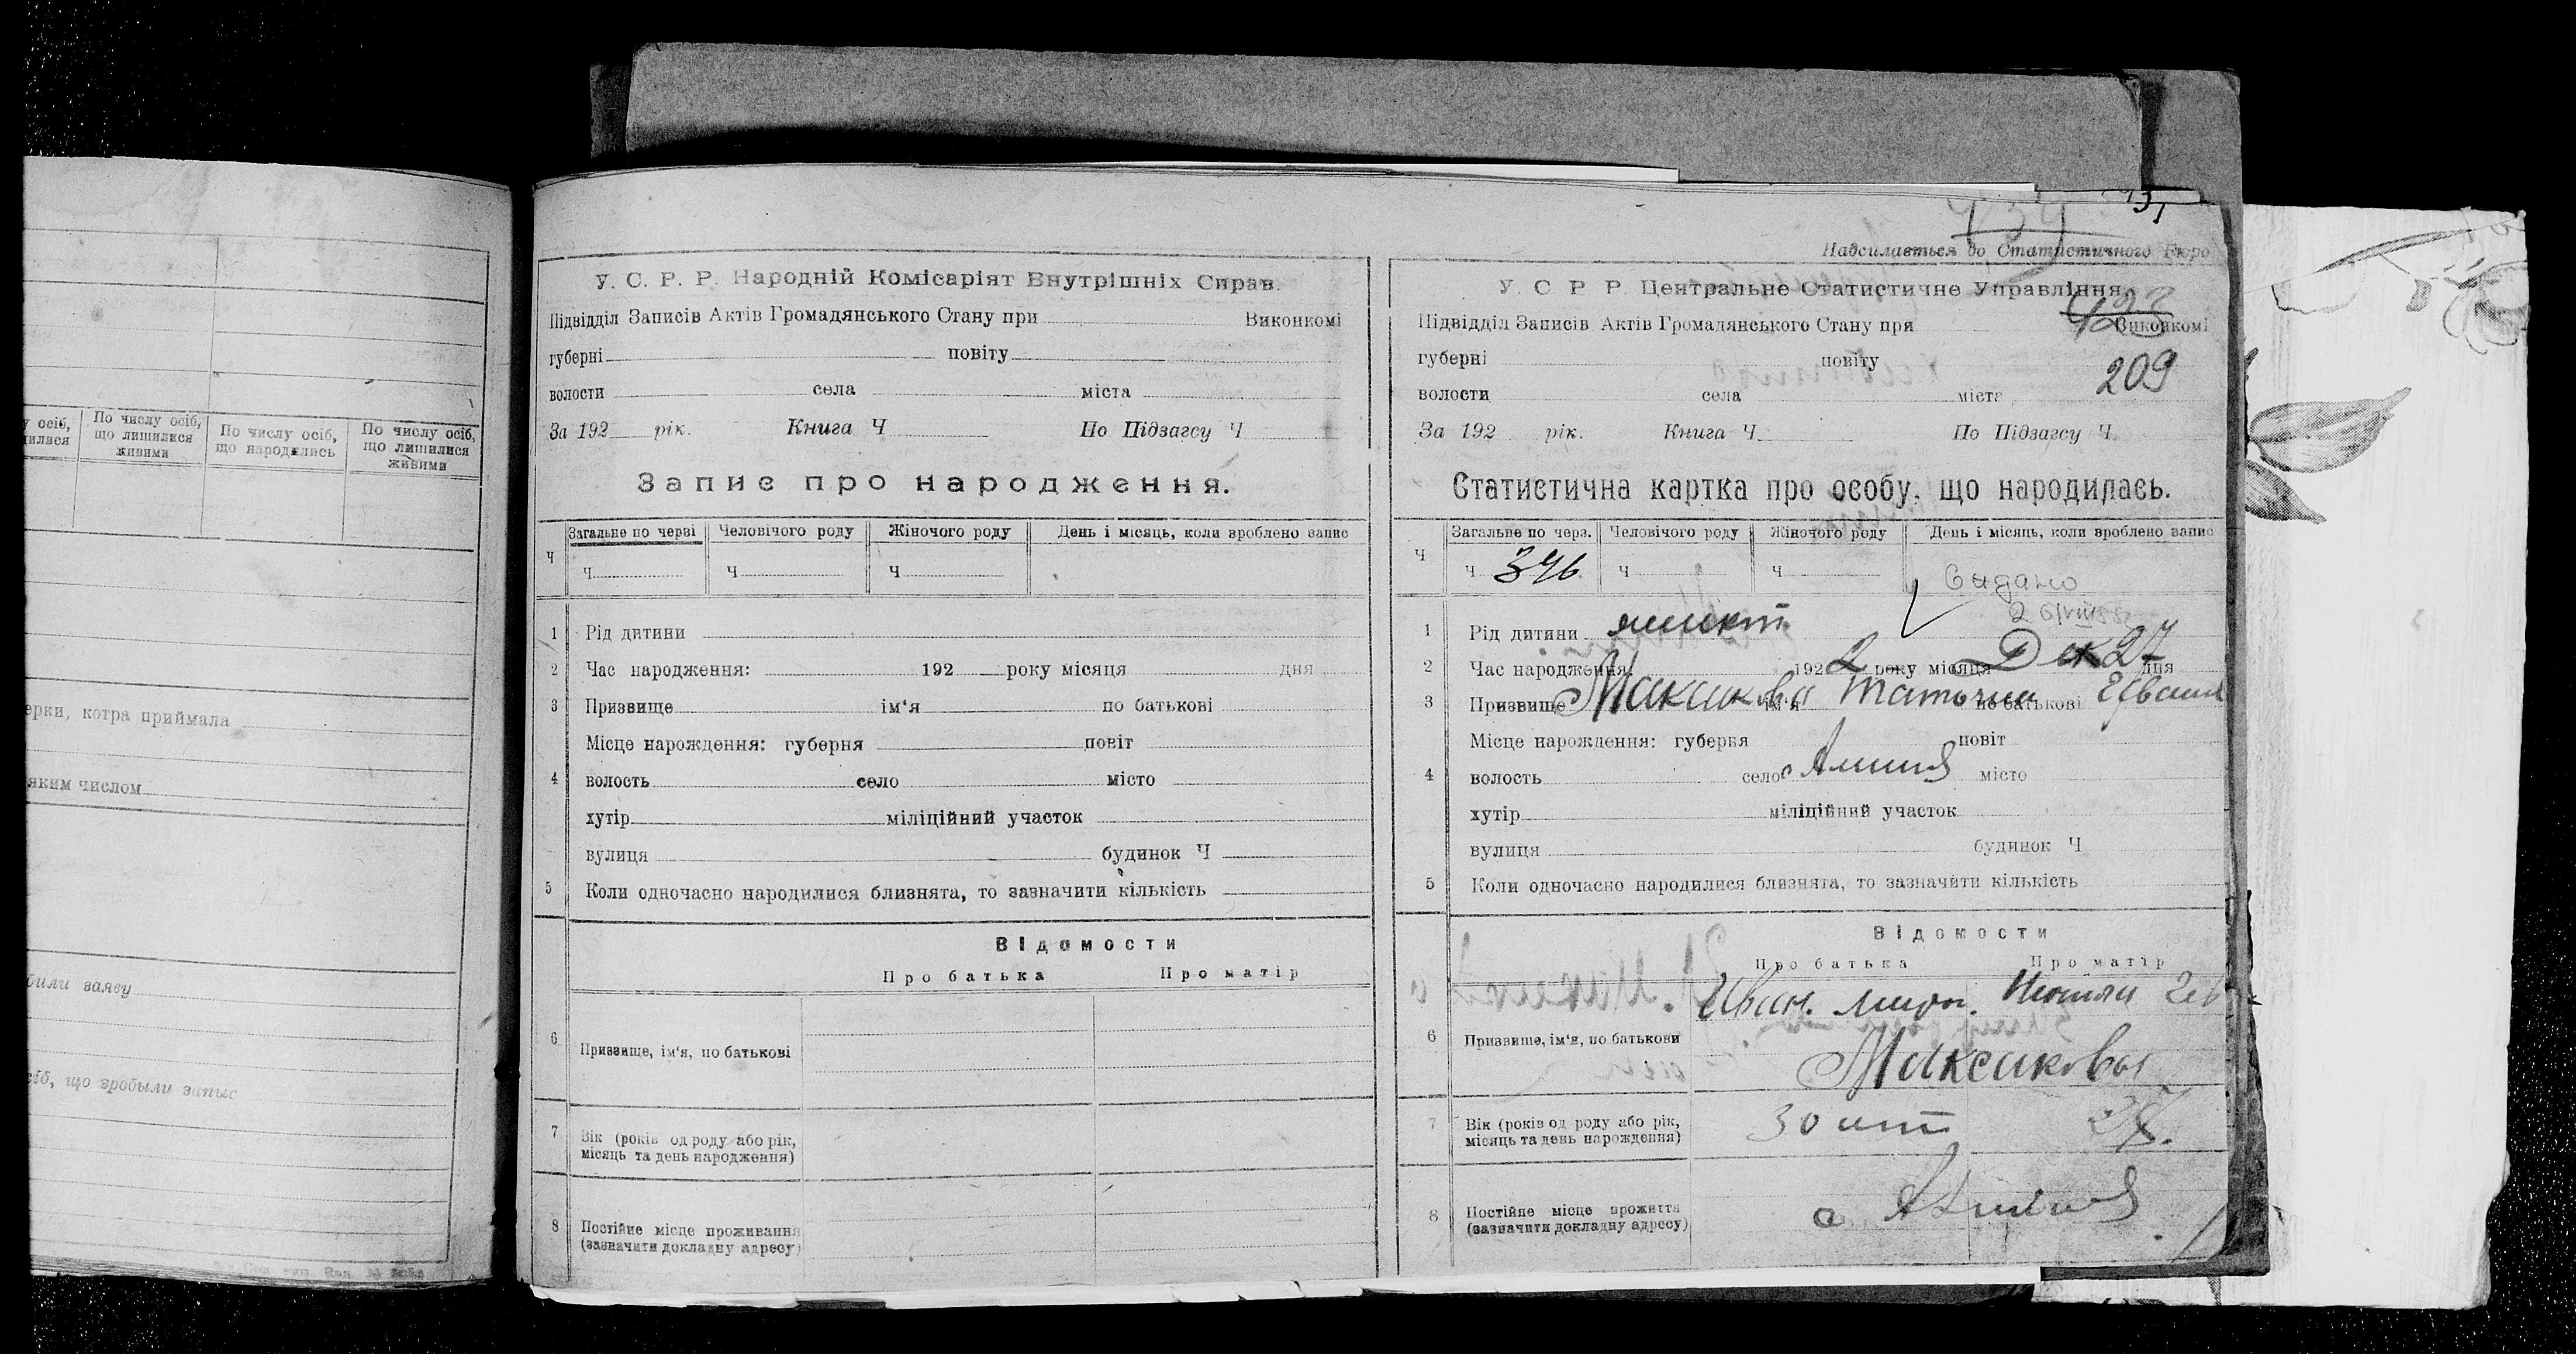 у осіб, По числу осіб, що лишилися живими По числу осіб, що народились По числу осіб, що лишилися живими
ерки, котра приймала
яким числом
били заяву
сіб, що зробыли запыс
У. С. Р. Р. Народній Комісаріят Внутрішніх Справ.
Підвідділ Записів Актів Громадянського Стану при Виконкомі
губерні повіту
волости села міста
За 192 рік. Книга Ч По Підзагсу Ч
Запис про народження.
Загальне по черві Человічого роду Жіночого роду День і місяць, коли зроблено запис
Ч Ч Ч Ч
1 Рід дитини
2 Час народження: 192 року місяця дня
3 Призвище ім'я по батькові
Місце нарождення: губерня повіт
4 волость село місто
хутір міліційний участок
вулиця будинок Ч
5 Коли одночасно народилися близнята, то зазначити кількість
Відомости
Про батька Про матір
6 Призвище, ім'я, по батькові
7 Вік (років од роду або рік, місяць та день народження)
8 Постійне місце проживання (зазначити докладну адресу)
434
Надсилається до Статистичного Бюро
У. С. Р. Р. Центральне Статистичне Управління
423
Підвідділ Записів Актів Громадянського Стану при Виконкомі
губерні повіту
209
волости села міста
За 192 рік. Книга Ч По Підзагсу Ч
Статистична картка про особу, що народилась.
Загальне по черз. Человічого роду Жіночого роду День і місяць, коли зроблено запис
Ч Ч 346 Ч Ч
Видано
1 Рід дитини
2 Час народження 1922 року місяця Дек 27 дня
3 Призвище Максакова ім'я по батькові
Місце нарождення: губерня повіт
4 волость село місто
хутір міліційний участок
вулиця будинок Ч
5 Коли одночасно народилися близнята, то зазначити кількість
Відомости
Про батька Про матір
Иван.
6 Призвище, ім'я, по батькови
Максаковы
7 Вік (років од роду або рік, місяць та день нарождення) 30 лет
8 Постійне місце прожиття (зазначити докладну адресу) с